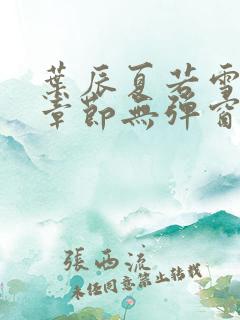 葉辰夏若雪
章節無彈窗
張西流
未經同意禁止轉載